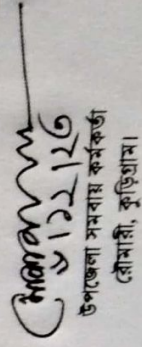 ৮/১২/২৩
উপজেলা সমবায় কর্মকর্তা
রৌমারী, কুড়িগ্রাম।